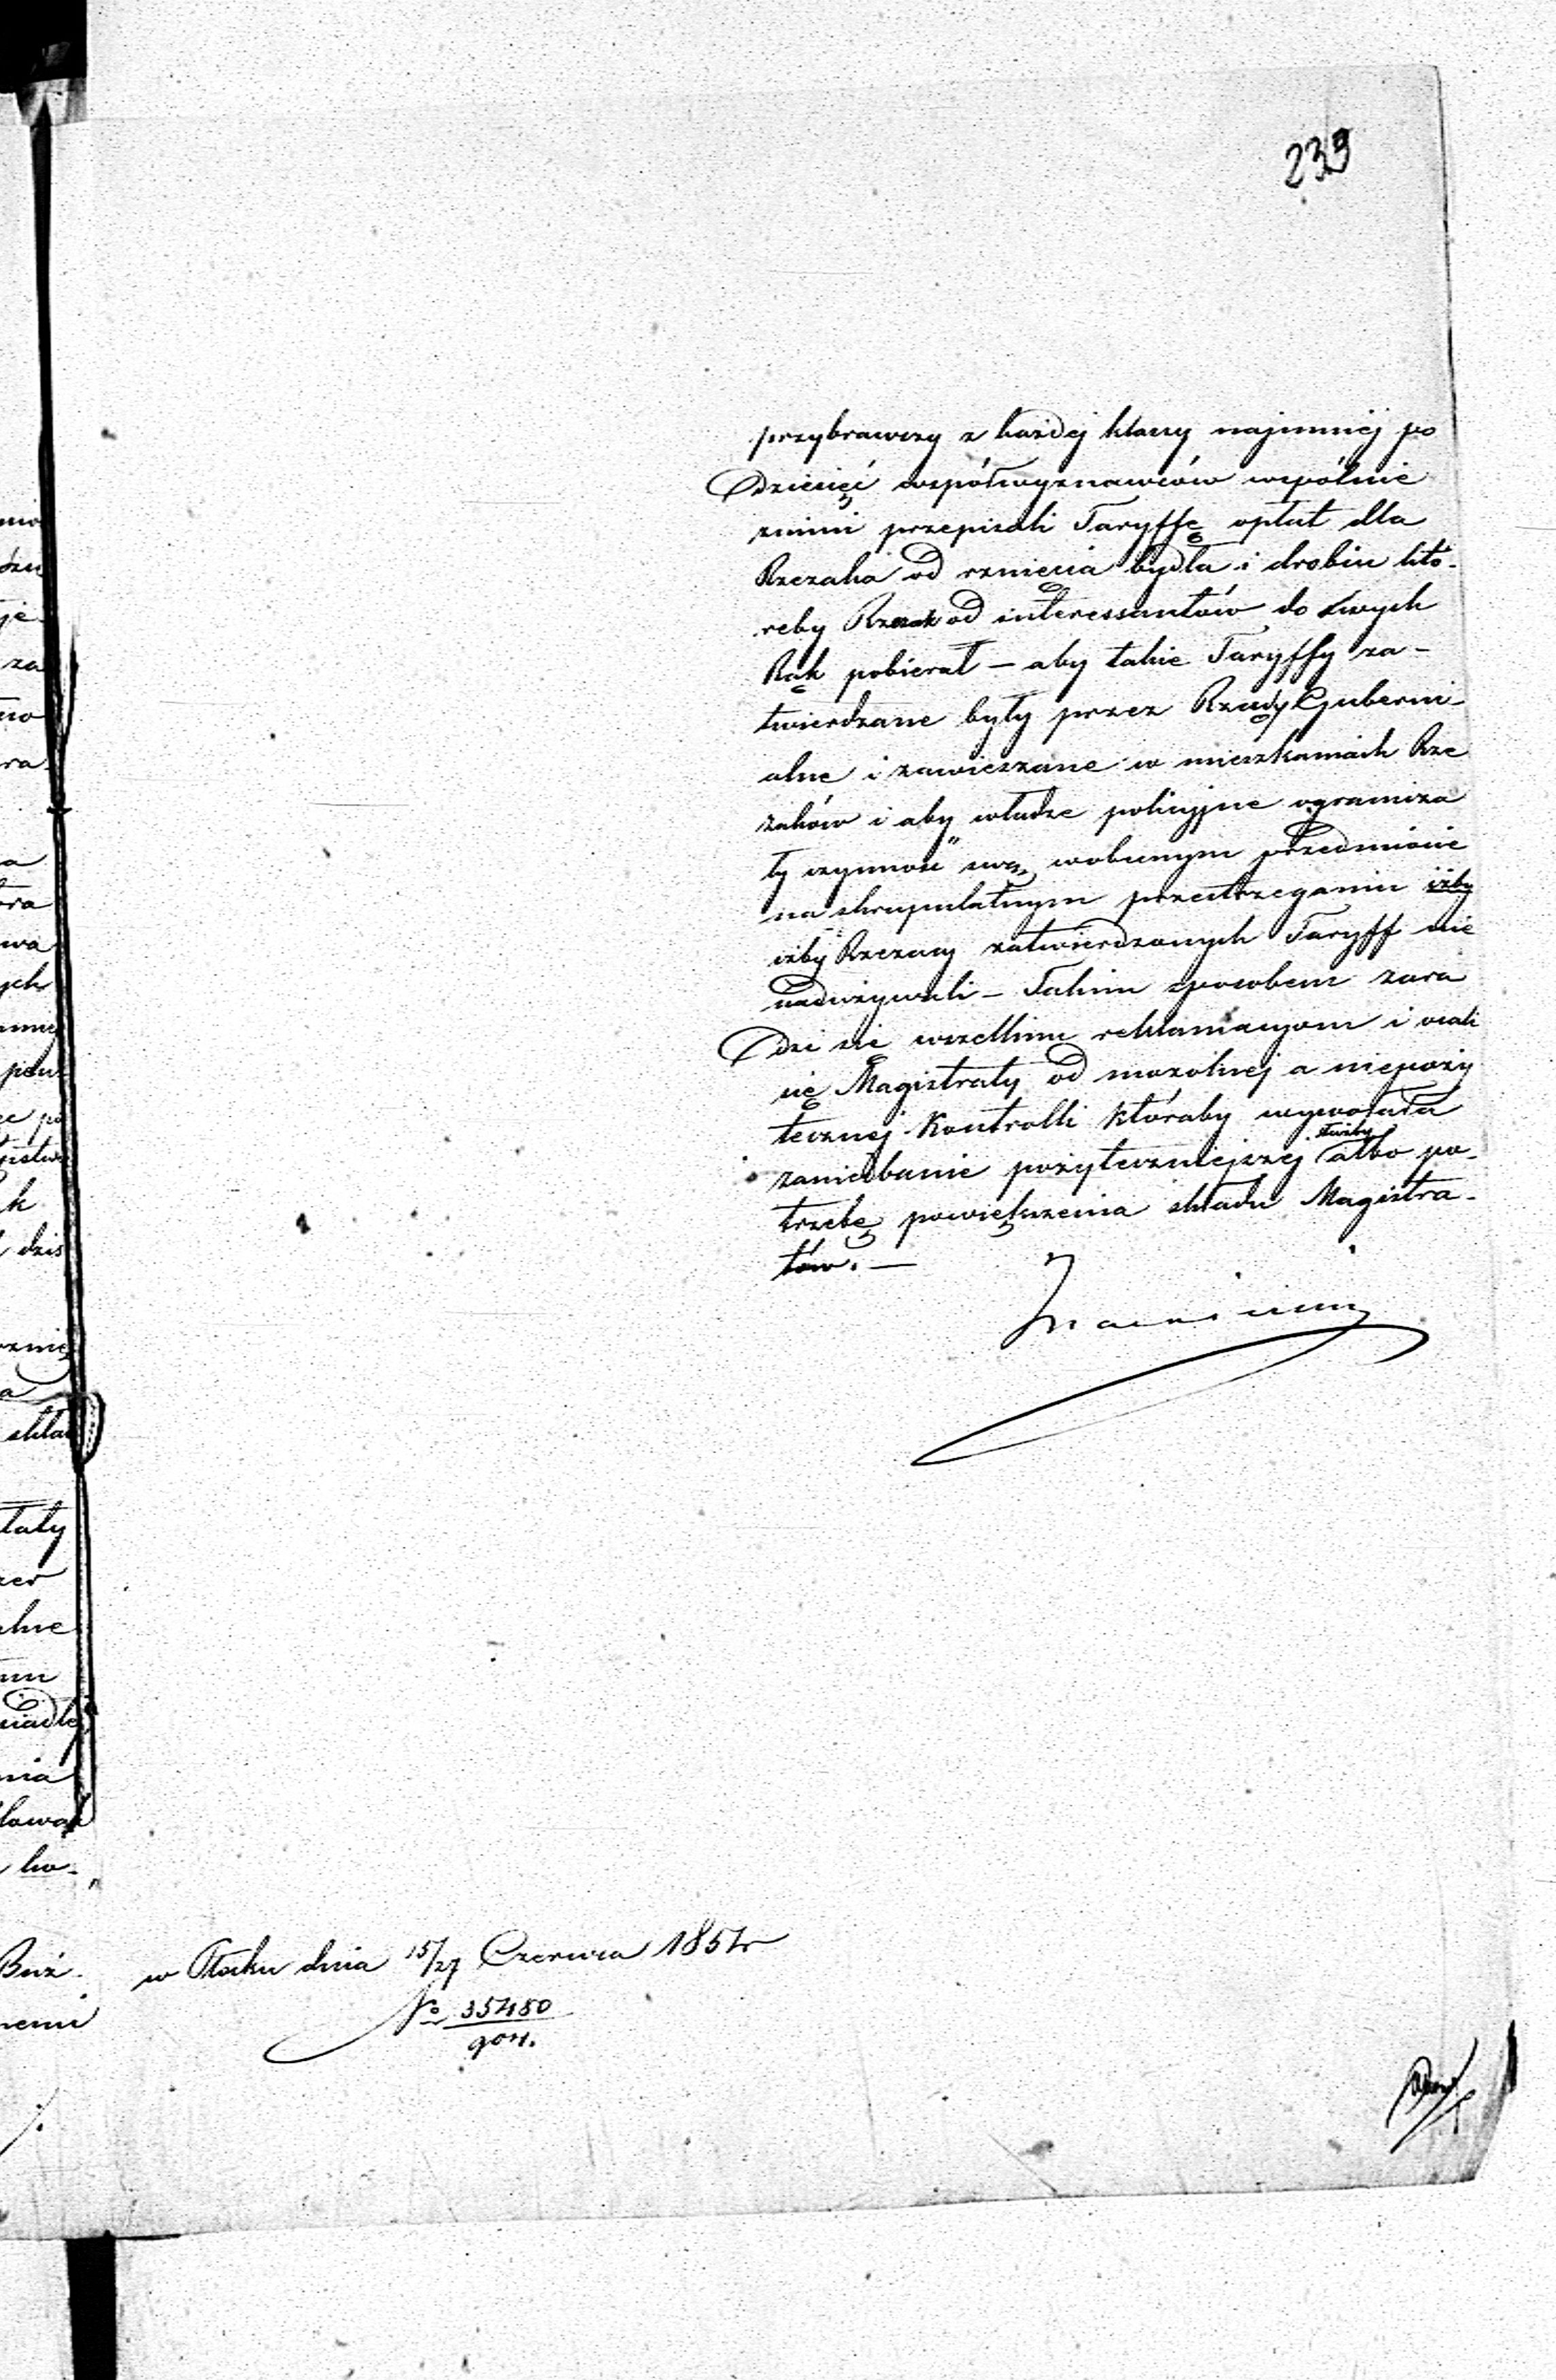 239
przybrawszy z każdej klassy najmniej po
dziesięć współwyznawców wspólnie
znimi przepisali Taryffę opłat dla
Rzezaka od rznięcia bydła i drobiu któ-
reby Rzezak od interessantów do swych
Rąk pobierał – aby takie Taryffy za-
twierdzane były przez Rządy Guberni-
alne i zawieszane w mieszkaniach Rze
zaków i aby władze policyjne ogranicza
ły czynność swą wobecnym przedmiocie
na skrupulatnym przestrzeganiu iżby
iżby Rzezacy zatwierdzonych Taryff nie
nadużywali – Takim sposobem zara
dzi się wszelkim reklamacyom i ocali
się Magistraty od mozolnej a niepoży
tecznej Kontrolli któraby wywołała
zaniedbanie pożyteczniejszej służby albo po-
trzebę powiększenia składu Magistra-
tów. –
w Płocku dnia 15/27 Czerwca 1857r
No 35480